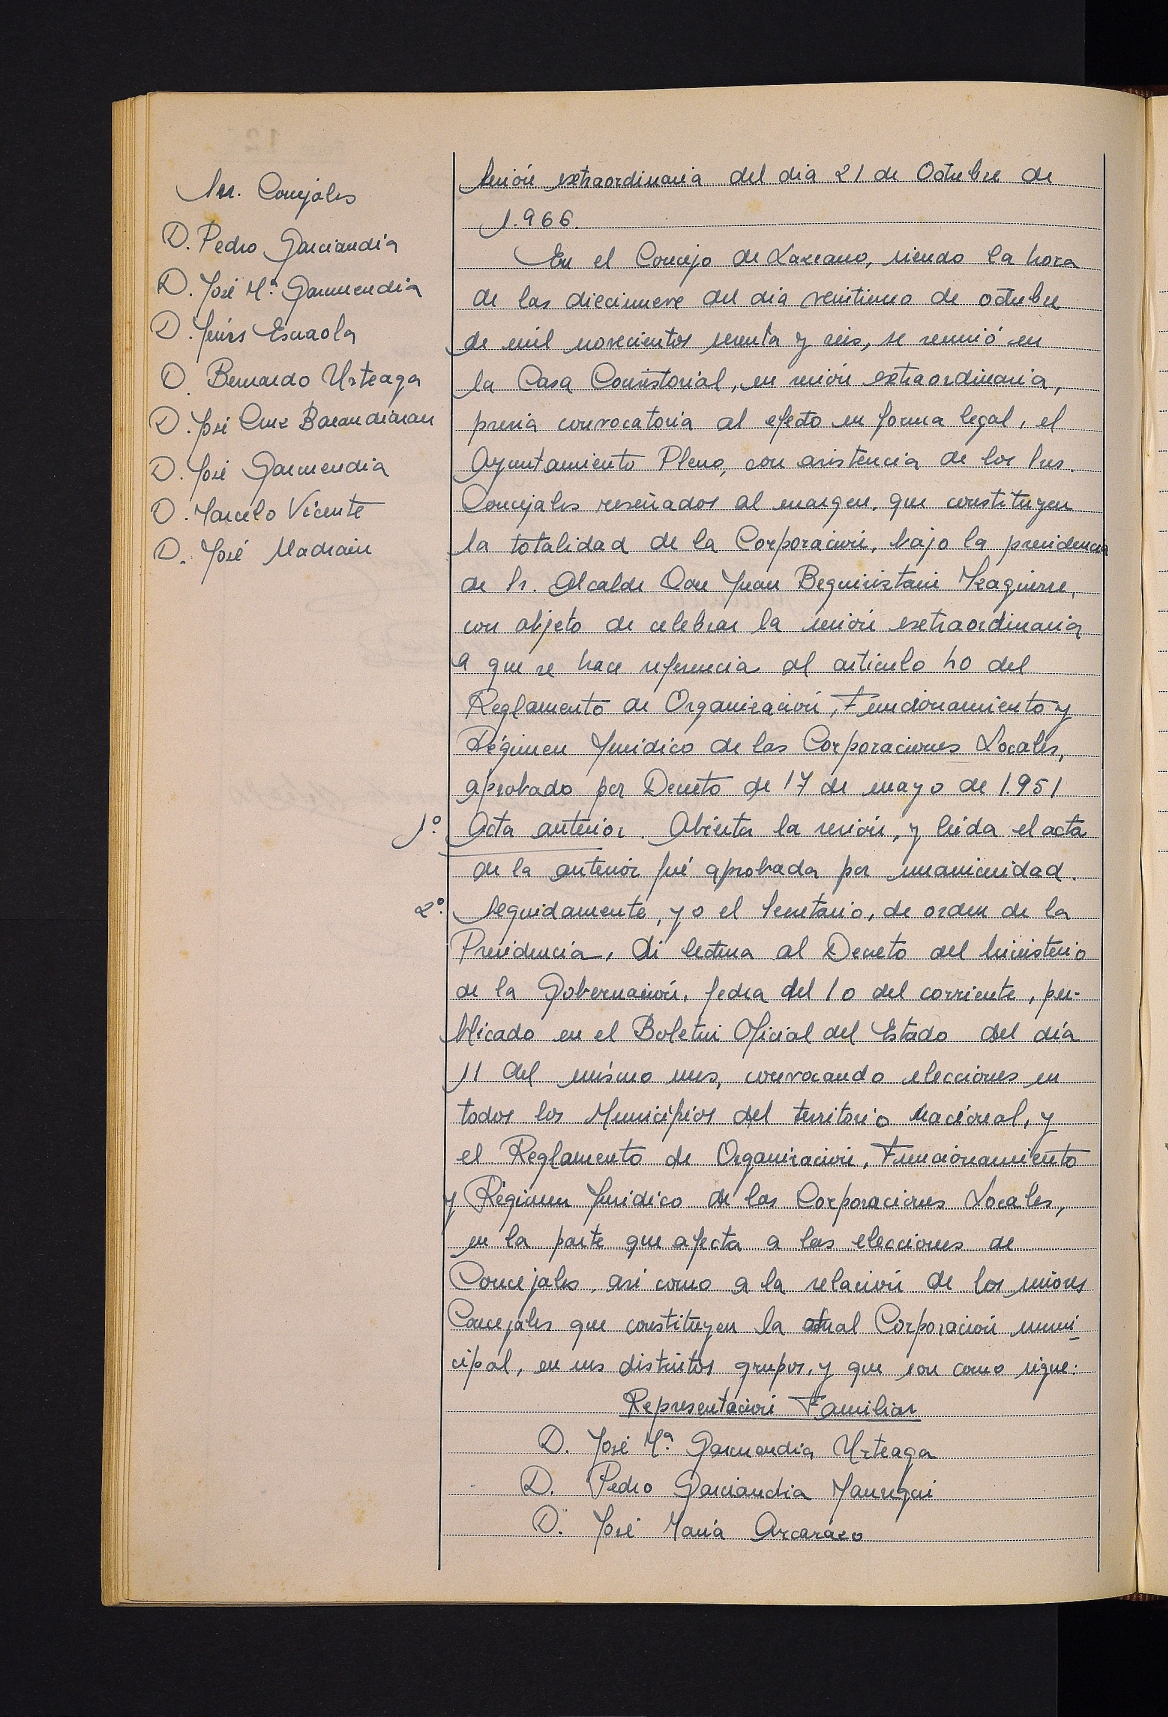 Srs. Concejales
D. Pedro Garciandia
D. José Mª. Garmendia
D. Jesús Esnaola
D. Bernardo Urteaga
D. José Cruz Barandiaran
D. José Garmendia
D. Marcelo Vicente
D. José Madrain
Sesión extraordinaria del dia 21 de Octubre de
1.966.
En el Concejo de Lazcano, siendo la hora
de las diecinueve del dia veintiuno de octubre
de mil novecientos sesenta y seis, se reunió en
la Casa Consistorial, en sesión extraordinaria,
previa convocatoria al efecto en forma legal, el
Ayuntamiento Pleno, con asistencia de los Srs.
Concejales reseñados al margen, que constituyen
la totalidad de la Corporación, bajo la presidencia
de Sr. Alcalde Don Juan Beguiristain Izaguirre,
con objeto de celebrar la sesión extraordinaria
a que se hace referencia al articulo 40 del
Reglamento de Organización, Funcionamiento y
Régimen Juridico de las Corporaciones Locales,
aprobado por Decreto de 17 de mayo de 1.951
1º. Acta anterior. Abierta la sesión, y leida el acta
de la anterior fué aprobada por unanimidad.
2º. Seguidamente, yo el Secretario, de orden de la
Presidencia, di lectura al Decreto del Ministerio
de la Gobernación, fecha del 10 del corriente, pu-
blicado en el Boletin Oficial del Estado del día
11 del mismo mes, convocando elecciones en
todos los Municipios del territorio Nacional, y
el Reglamento de Organización, Funcionamiento
y Régimen Juridico de las Corporaciones Locales,
en la parte que afecta a las elecciones de
Concejales, asi como a la relación de los señores
Concejales que constituyen la atual Corporación muni-
cipal, en sus distintos grupos, y que son como sigue:
Representación Familiar
D. José Mª. Garmendia Urteaga
D. Pedro Garciandia Jauregui
D. José Maria Arcarazo